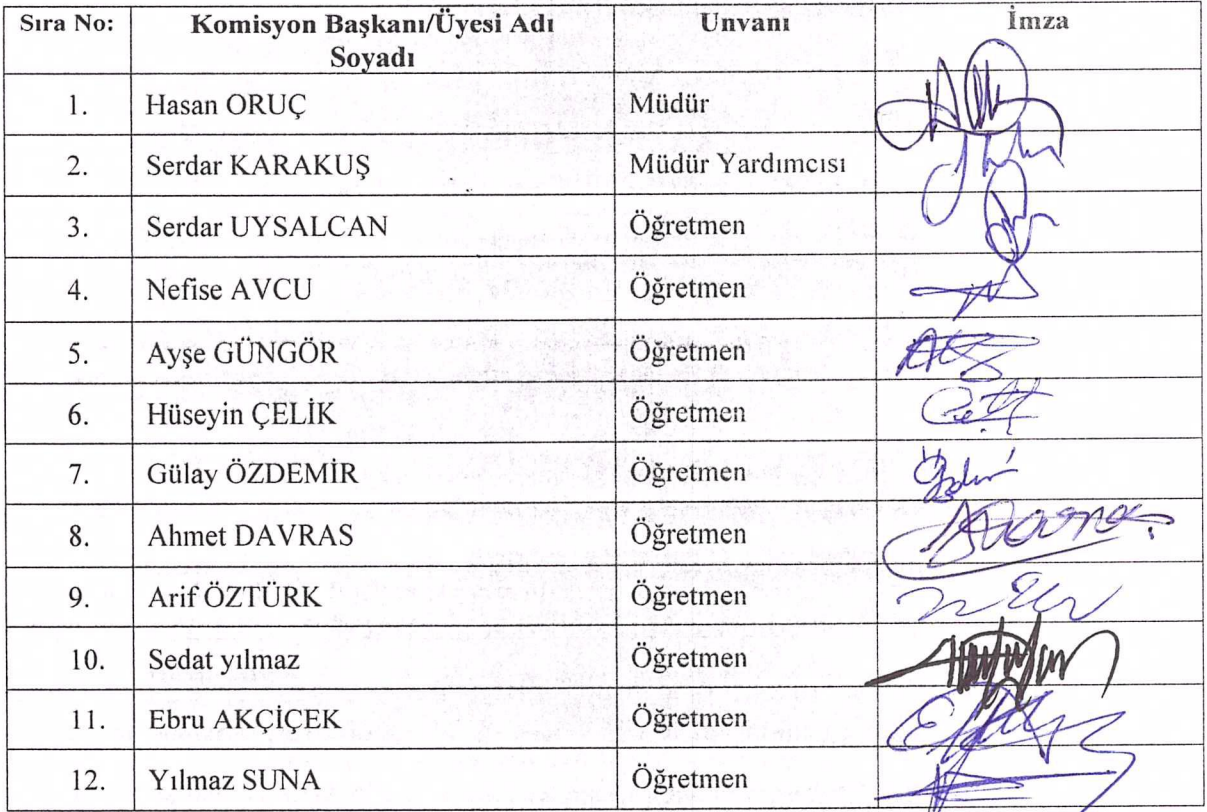 Sıra No: Komisyon Başkanı/Üyesi Adı Soyadı Unvanı İmza
1. Hasan ORUÇ Müdür
2. Serdar KARAKUŞ Müdür Yardımcısı
3. Serdar UYSALCAN Öğretmen
4. Nefise AVCU Öğretmen
5. Ayşe GÜNGÖR Öğretmen
6. Hüseyin ÇELİK Öğretmen
7. Gülay ÖZDEMİR Öğretmen
8. Ahmet DAVRAS Öğretmen
9. Arif ÖZTÜRK Öğretmen
10. Sedat yılmaz Öğretmen
11. Ebru AKÇİÇEK Öğretmen
12. Yılmaz SUNA Öğretmen